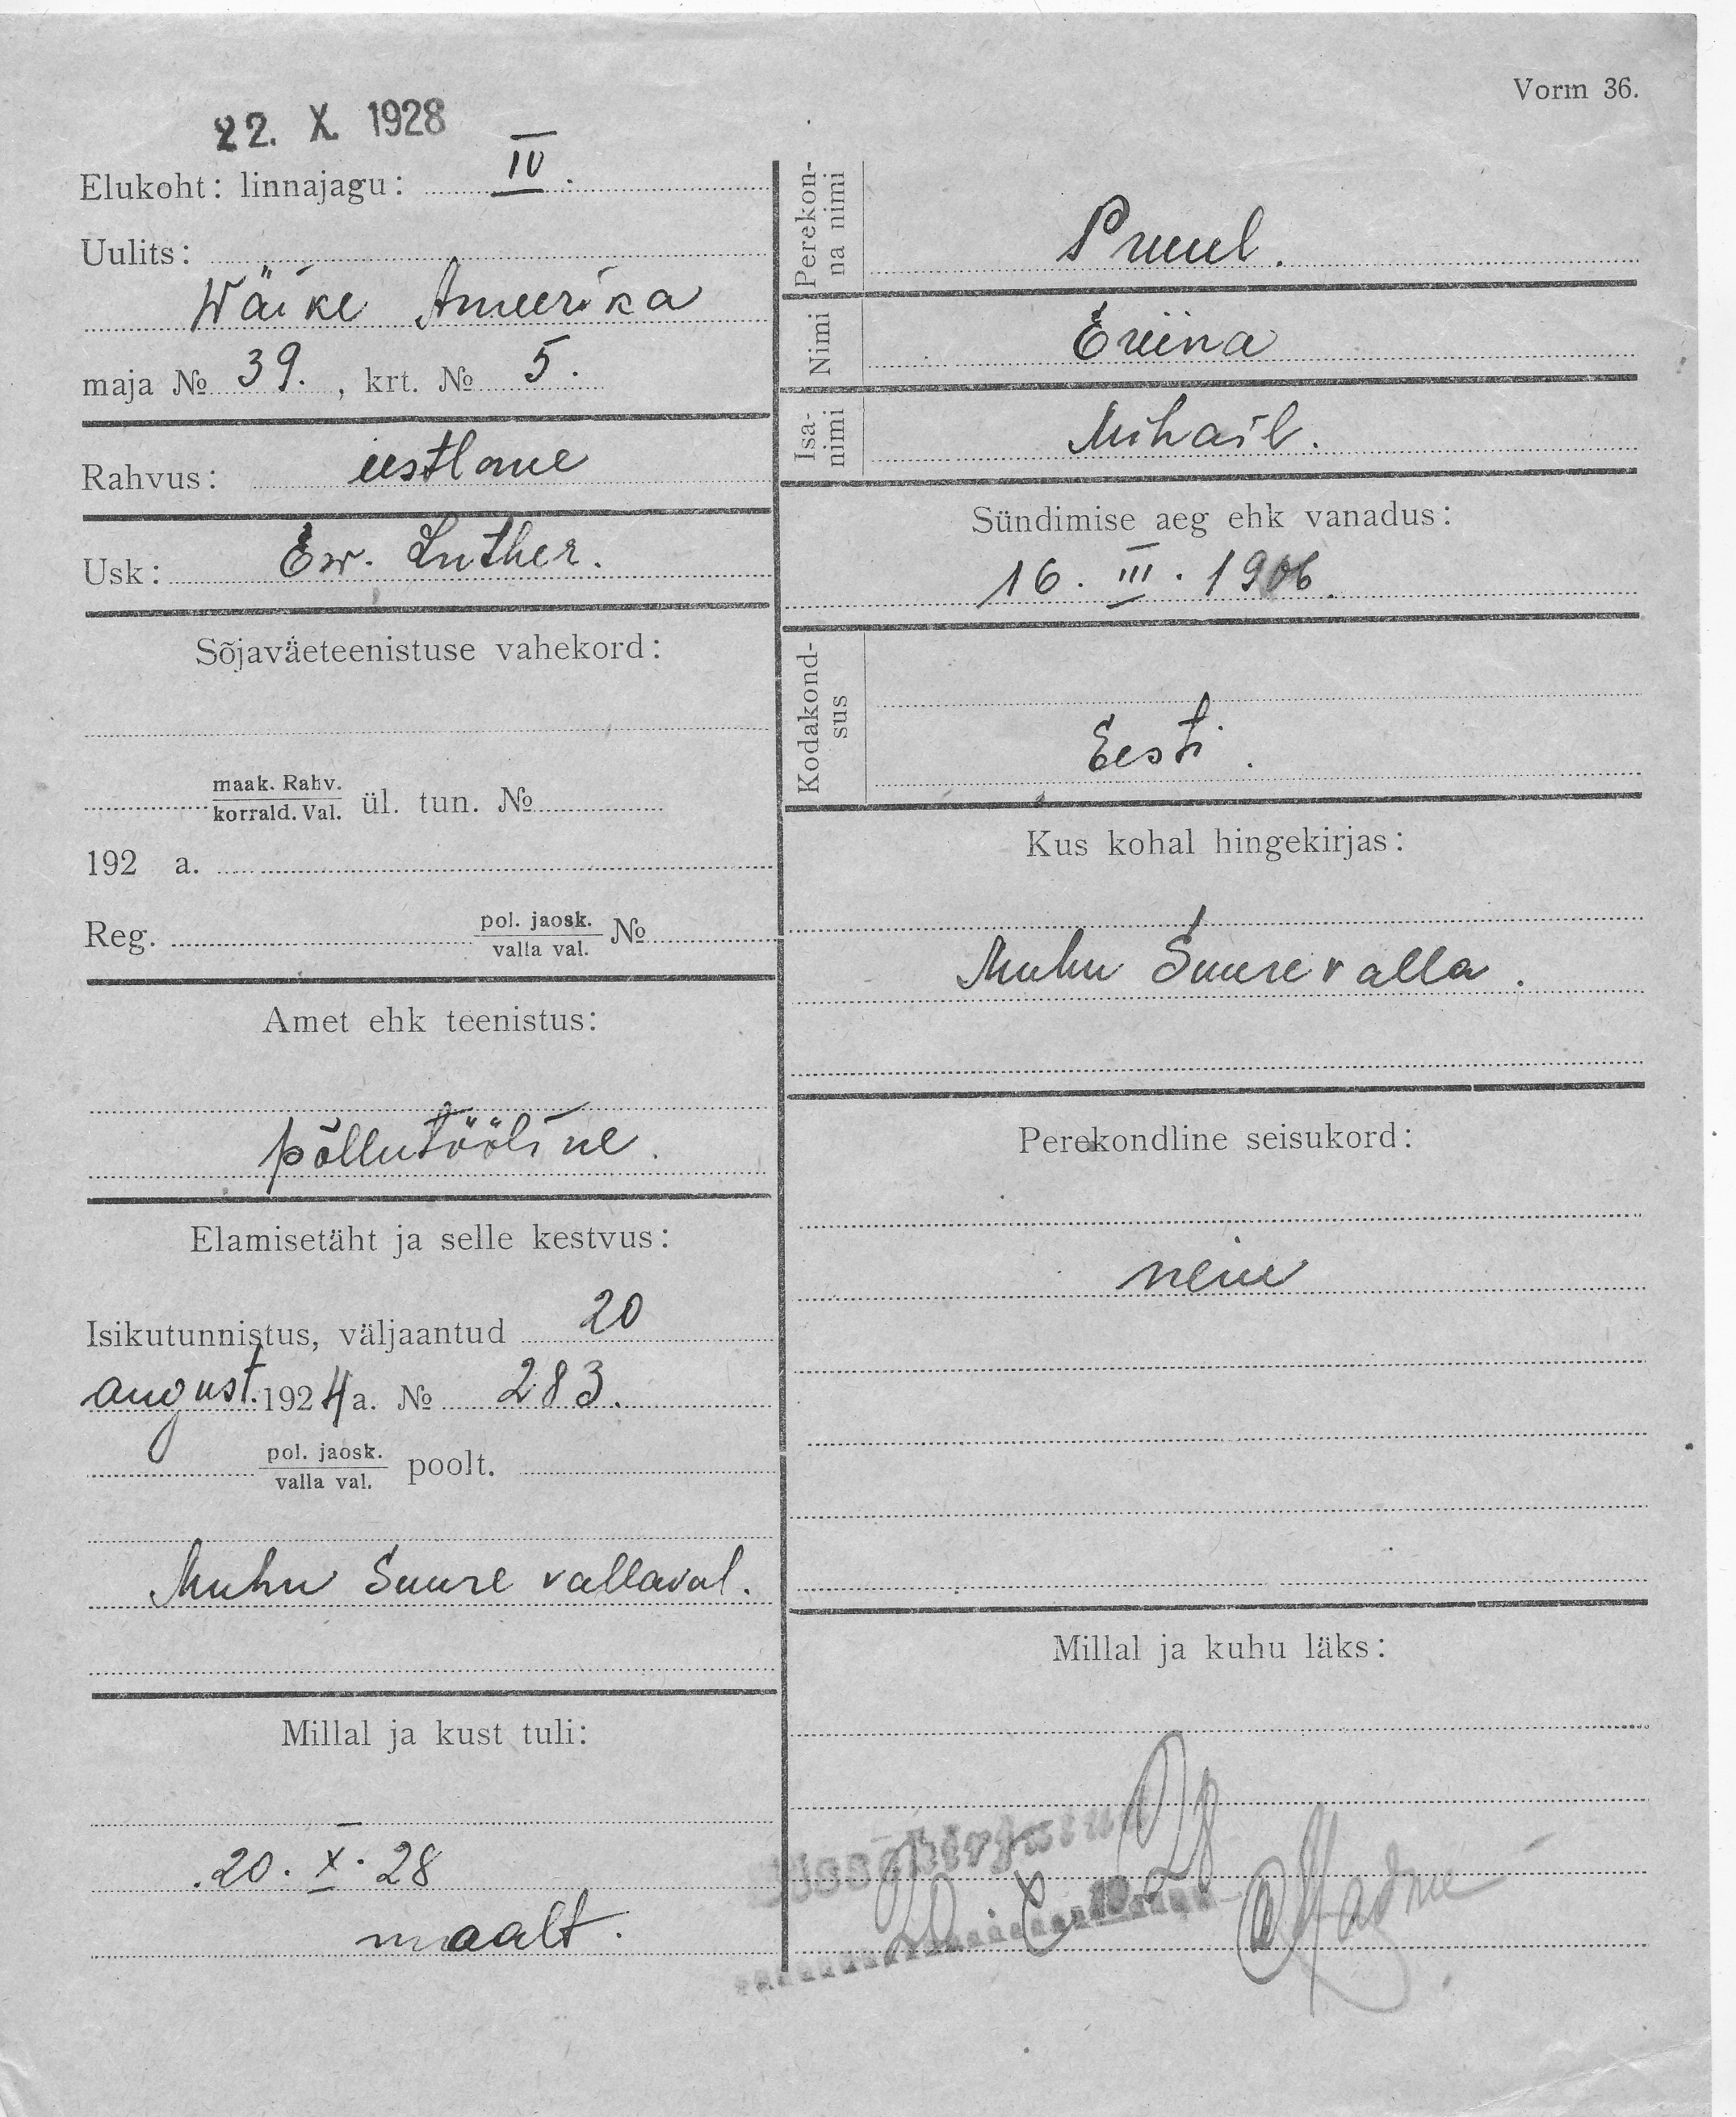 Vorm 36.
22. X. 1928
Elukoht: linnajagu: IV.
Uulits:
Wäike Ameerika
maja № 39., krt. № 5.
Rahvus: eestlane
Usk: Ew. Luther.
Sõjaväeteenistuse vahekord:
maak. Rahv.
korrald. Val. ül. tun. №
192 a.
Reg. pol. jaosk. №
valla val.
Amet ehk teenistus:
põllutööline.
Elamisetäht ja selle kestvus:
Isikutunnistus, väljaantud 20
august. 1924 a. № 283.
pol. jaosk. poolt.
valla val.
Muhu Suure vallaval.
Millal ja kust tuli:
20. X. 28
maalt.
Perekon-
na nimi
Pruul.
Nimi
Isa-
nimi
Mihail.
Sündimise aeg ehk vanadus:
16. III. 1906.
Kodakond-
sus
Eesti.
Kus kohal hingekirjas:
Muhu Suurevalla.
Perekondline seisukord:
neiu
Millal ja kuhu läks: